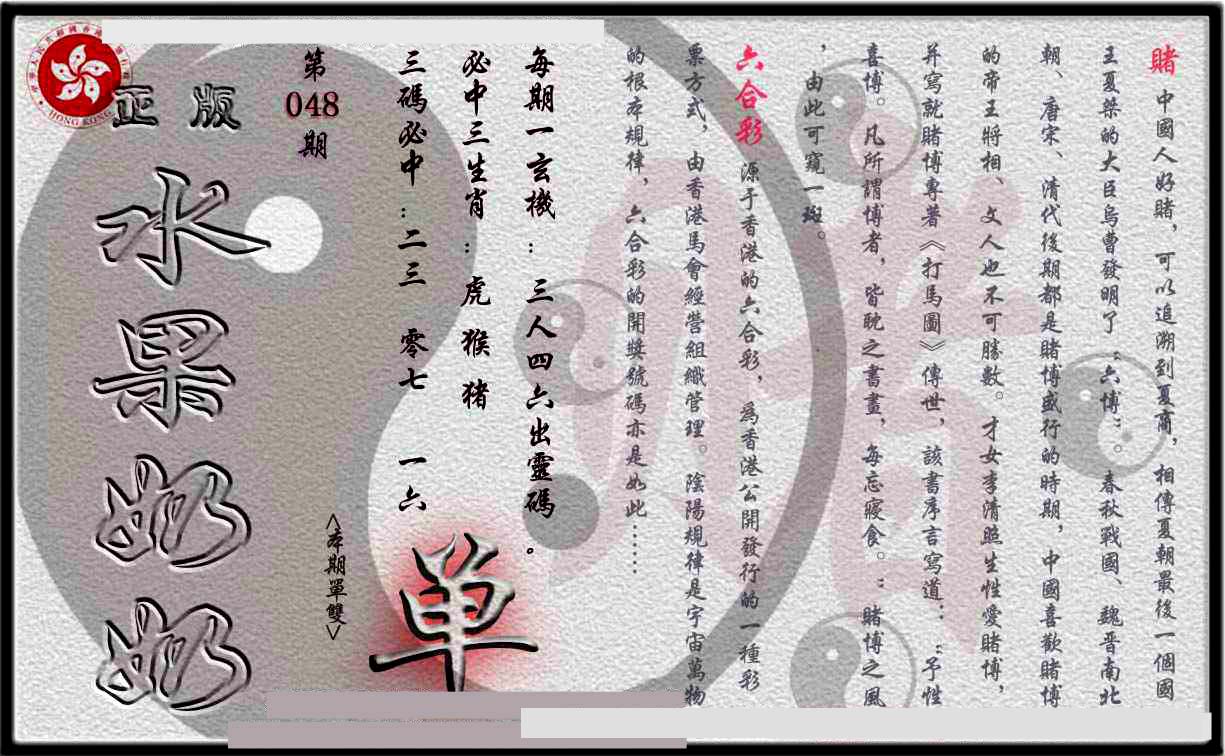 賭 中國人好賭，可以追溯到夏商，相傳夏朝最後一個國
王夏桀的大臣烏曹發明了“六博”。春秋戰國、魏晋南北
朝、唐宋、清代後期都是賭博盛行的時期，中國喜歡賭博
的帝王將相、文人也不可勝數。才女李清照生性愛賭博，
并寫就賭博專著《打馬圖》傳世，該書序言寫道：“予性
喜博。凡所謂博者，皆耽之書畫，每忘寢食。”賭博之風
，由此可窺一斑。
六合彩 源于香港的六合彩，爲香港公開發行的一種彩
票方式，由香港馬會經營組織管理。陰陽規律是宇宙萬物
的根本規律，六合彩的開獎號碼亦是如此……
每期一玄機：三人四六出靈碼。
必中三生肖：虎 猴 猪
三碼必中：二三 零七 一六
第
048
期
<本期單雙>
单
正版
水果奶奶
HONG KONG